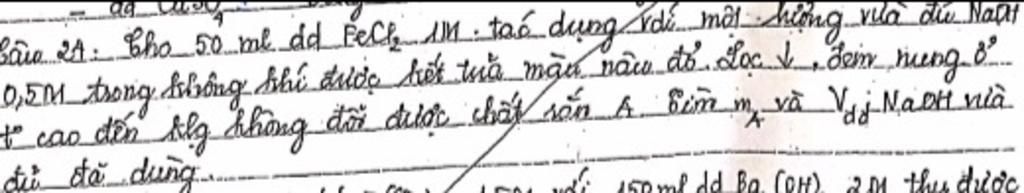 dd CuSO4
Câu 24: Cho 50 ml dd FeCl2 1M tác dụng với một lượng vừa đủ NaOH
0,5M trong không khí được kết tủa màu nâu đỏ. Lọc ↓, đem nung ở
t° cao đến klg không đổi được chất rắn A. Tìm mA và Vdd NaOH vừa
đủ đã dùng.
với 150ml dd Ba(OH)2 2M thu được